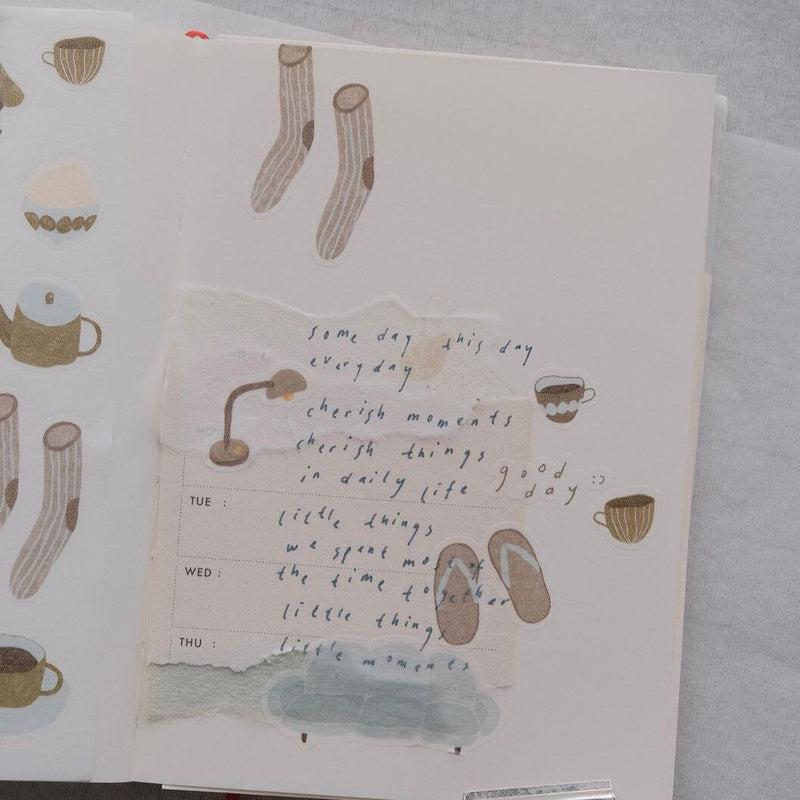 some day this day
everyday
cherish moments
cherish things
in daily life
good
day :)
TUE :
little things
we spent most of
WED :
the time together
little things
THU :
little moments